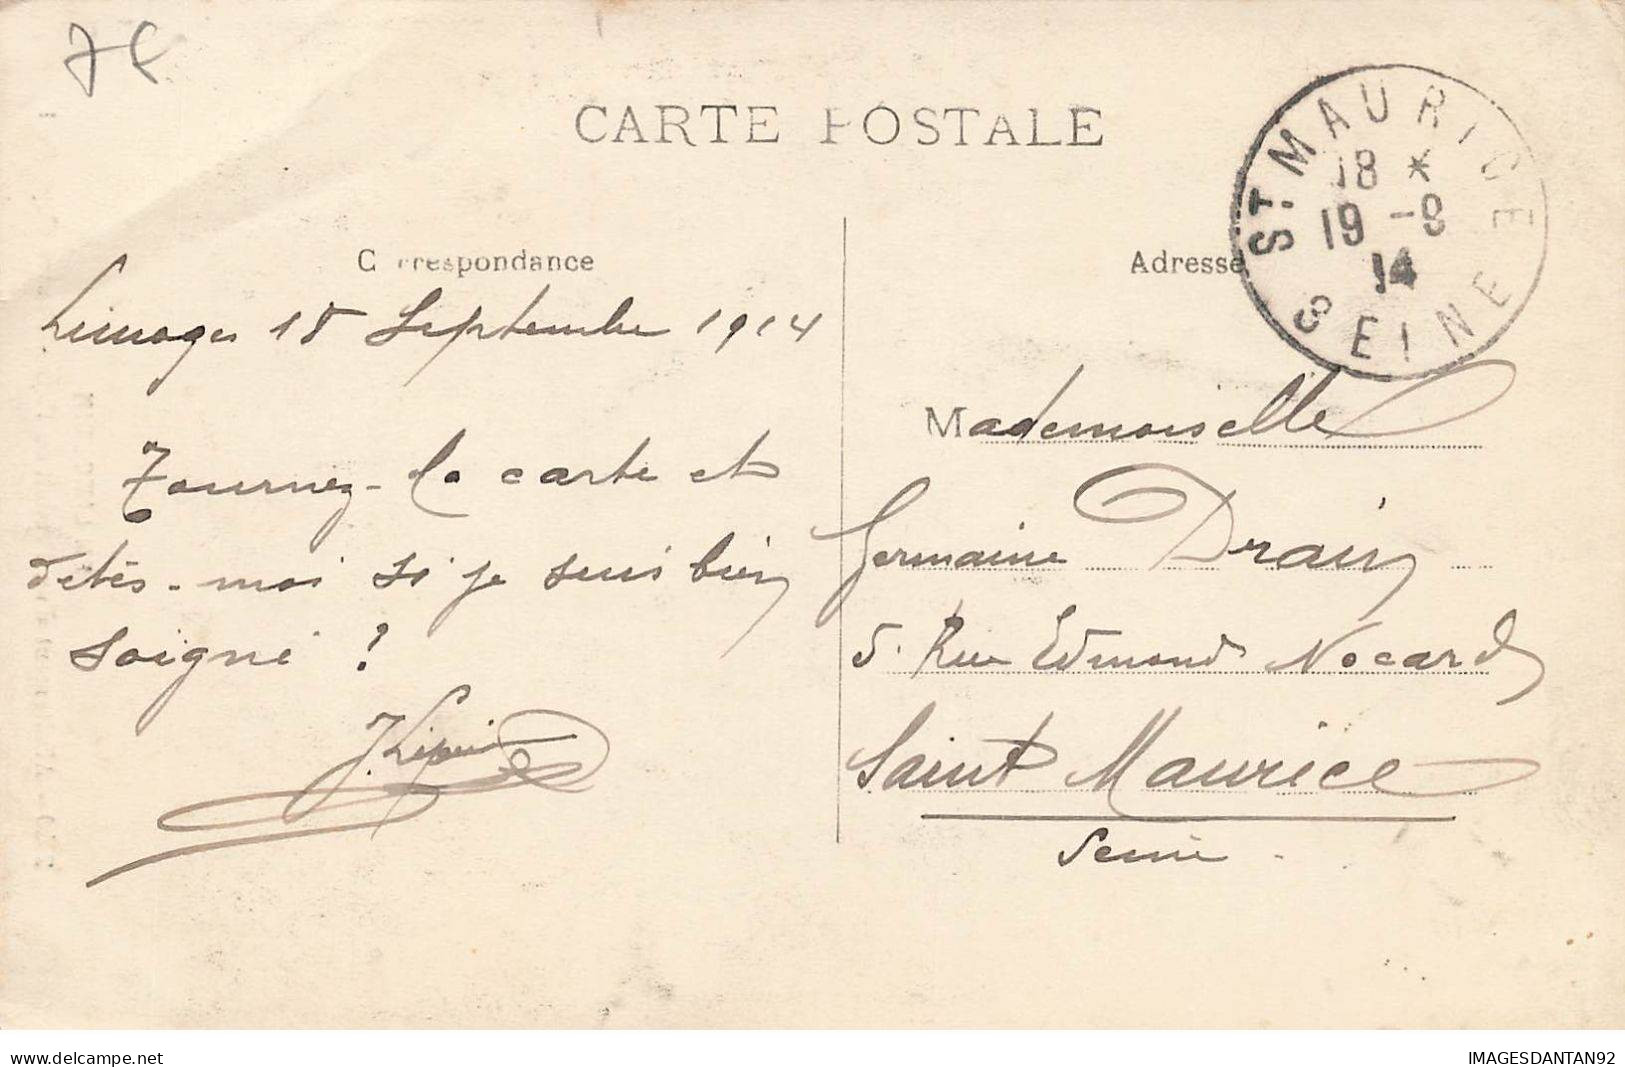 7€
CARTE POSTALE
Correspondance
Limoges 18 Septembre 1914
Tournez-la carte et
dites-moi si je suis bien
soigné ?
Adresse
ST MAURICE
18 *
19 -9
14
SEINE
Mademoiselle
Germaine Drain
5. Rue Edmond Nocard
Saint Maurice
Seine
delcampe.net
IMAGESDANTAN92